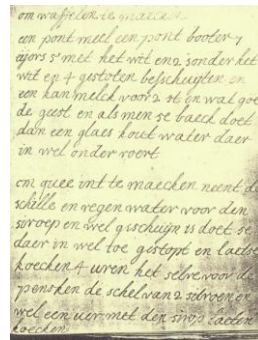 om waffelen te maecken
een pont meel een pont booter 7
eijers 5 met het wit en 2 sonder het
wit en 4 gestoten beschuijten en
een kan melck voor 2 st en wat goe
de geest en als men se baeck doet
dan een glaes kout water daer
in wel onder roert
om quee int te maecken neemt de
schelle en regen water voor den
siroep en wel geschuijn is doet se
daer in wel toe gestopt en laetse
koecken 4 uren het selve voor de
pensken de schel van 2 sitroenen
wel een uer met den sirop laeten
koecken